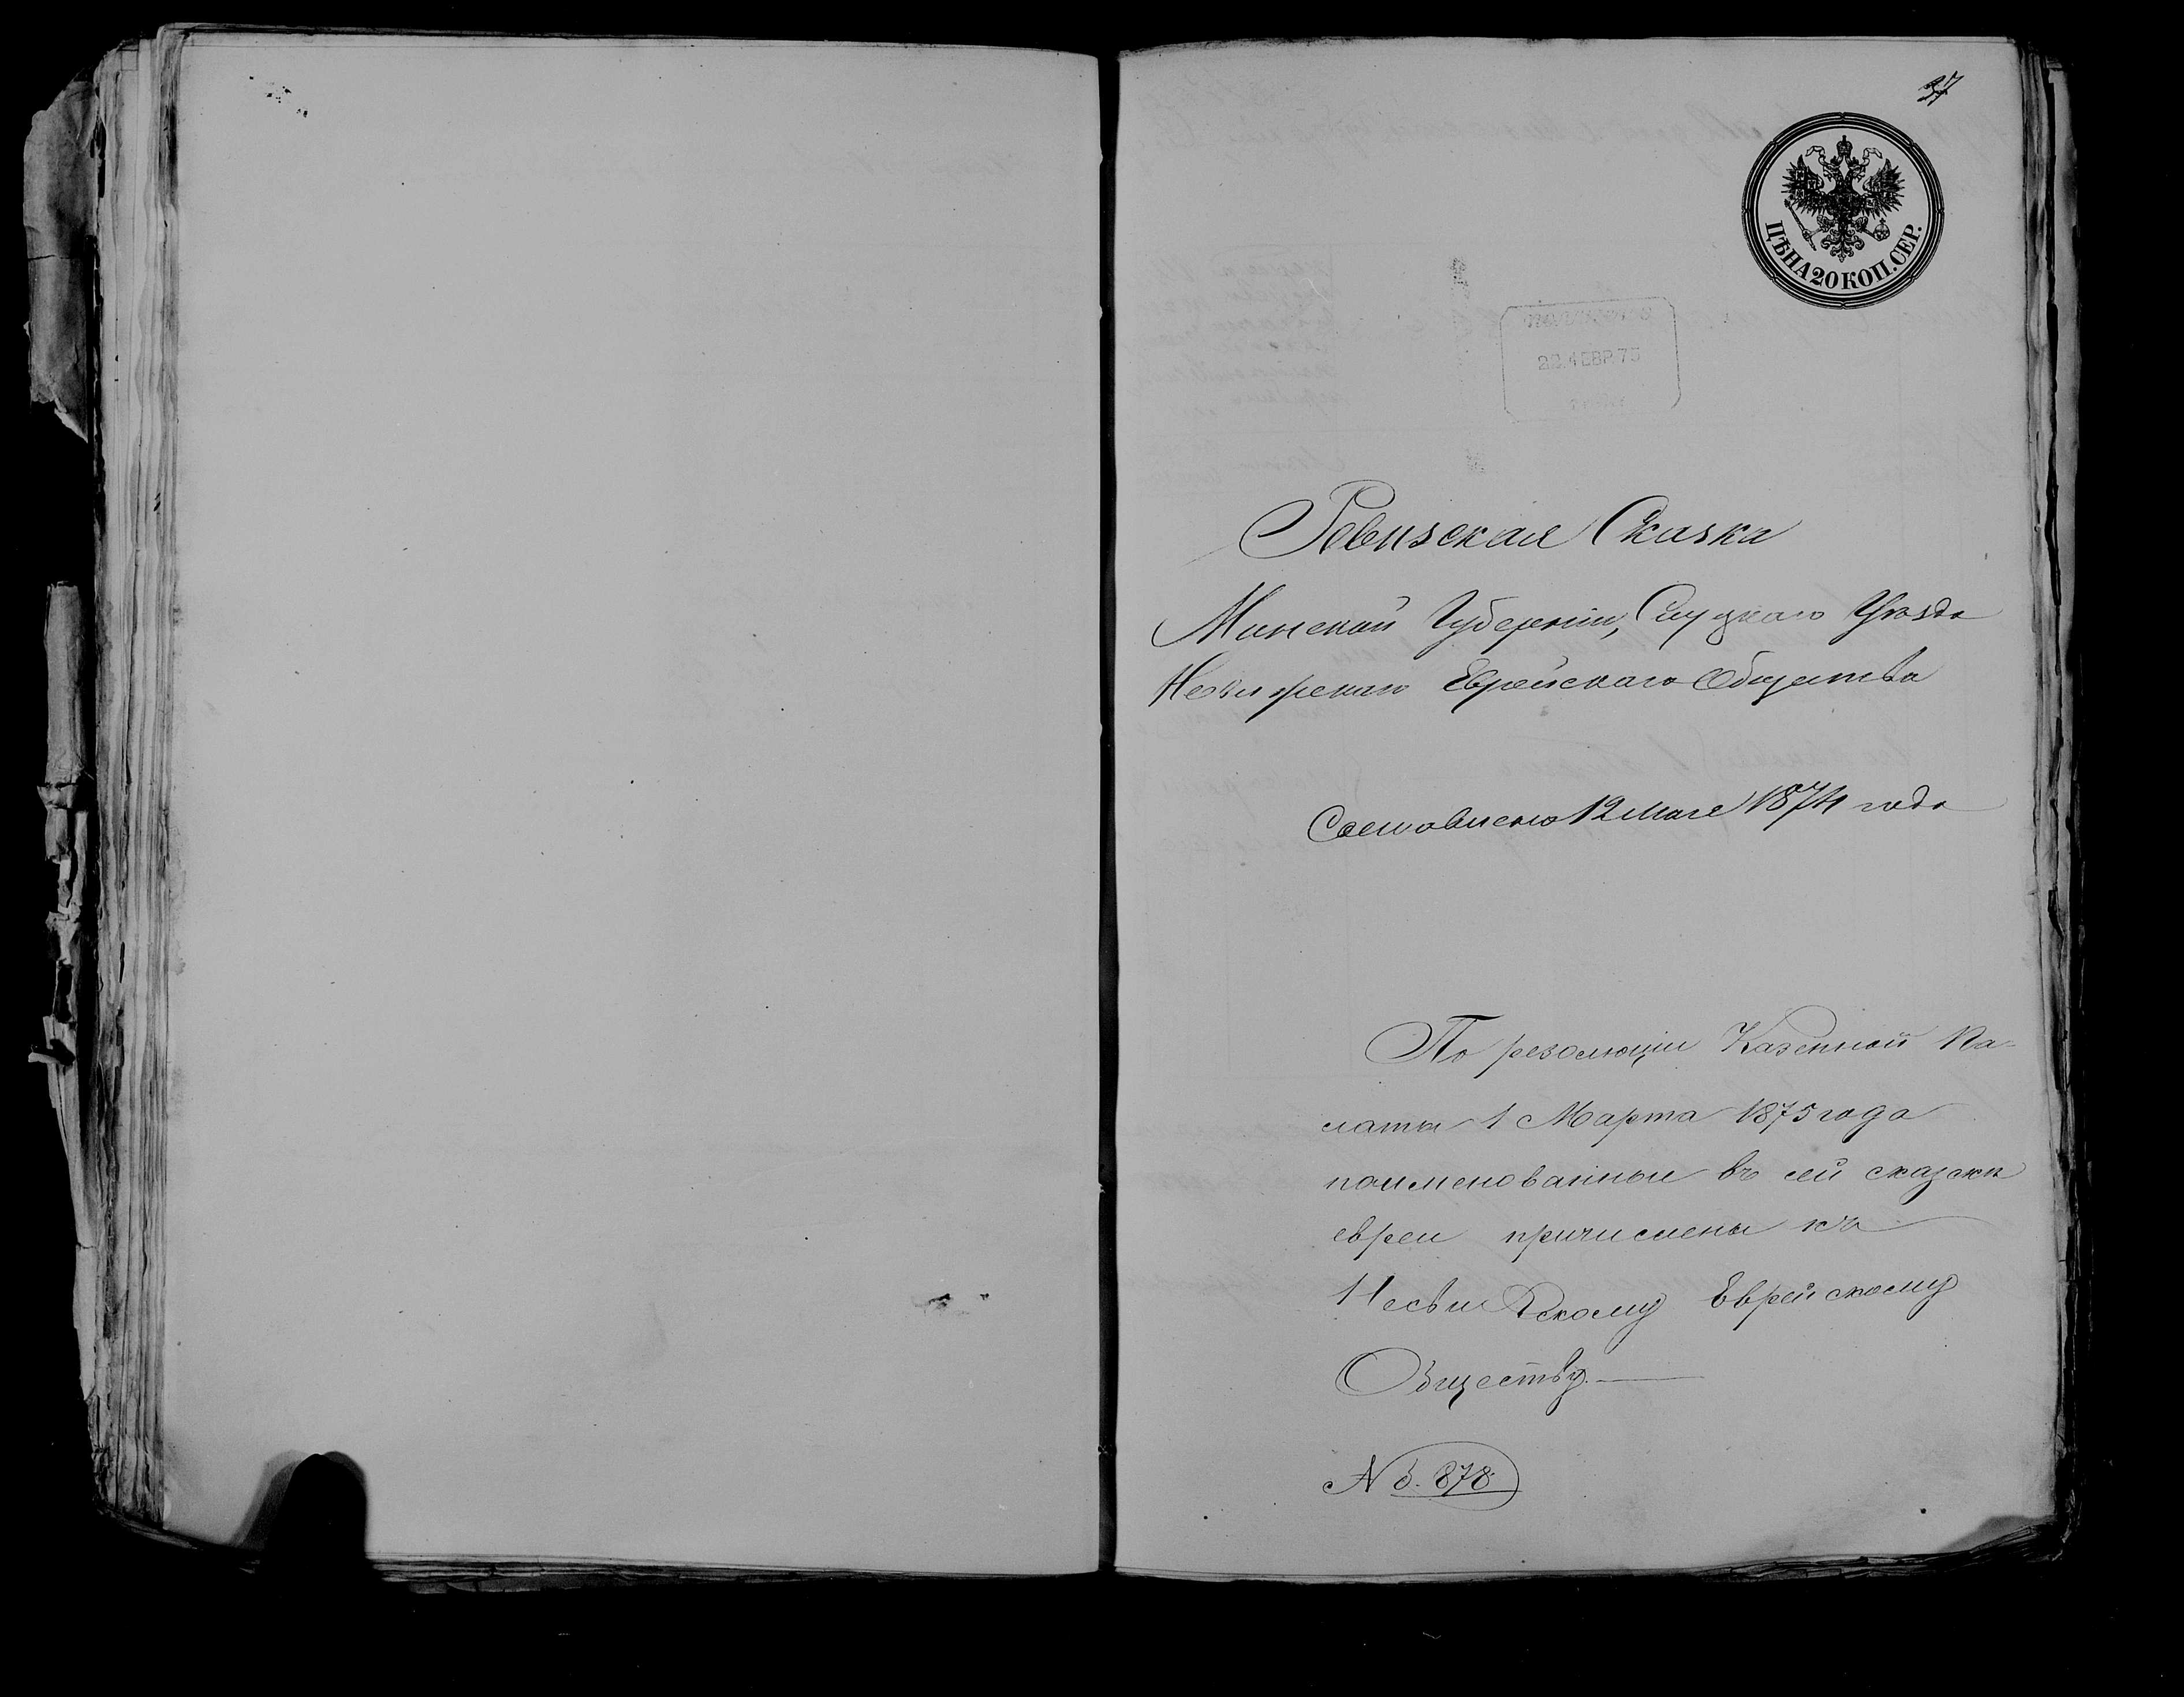 37
ЦѢНА 20 КОП. СЕР.
22 ФЕВР. 75
Ревизская Сказка
Минской Губерніи, Слуцкаго Уѣзда
Несвижскаго Еврейскаго Общества
Составлена 12 Мая 1874 года
По резолюціи Казенной Па-
латы 1 Марта 1875 года
поименованные въ сей сказкѣ
евреи причислены къ
Несвижскому Еврейскому
Обществу.
№ 878